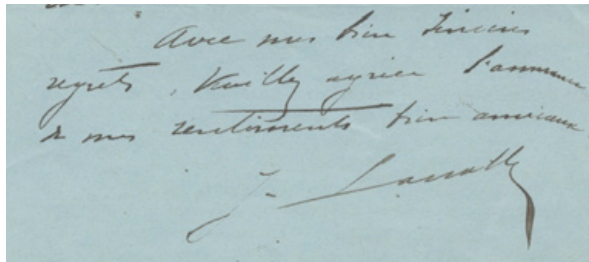 Avec mes bien sincères
regrets, Veuillez agréer l'assurance
de mes sentiments bien amicaux
J.